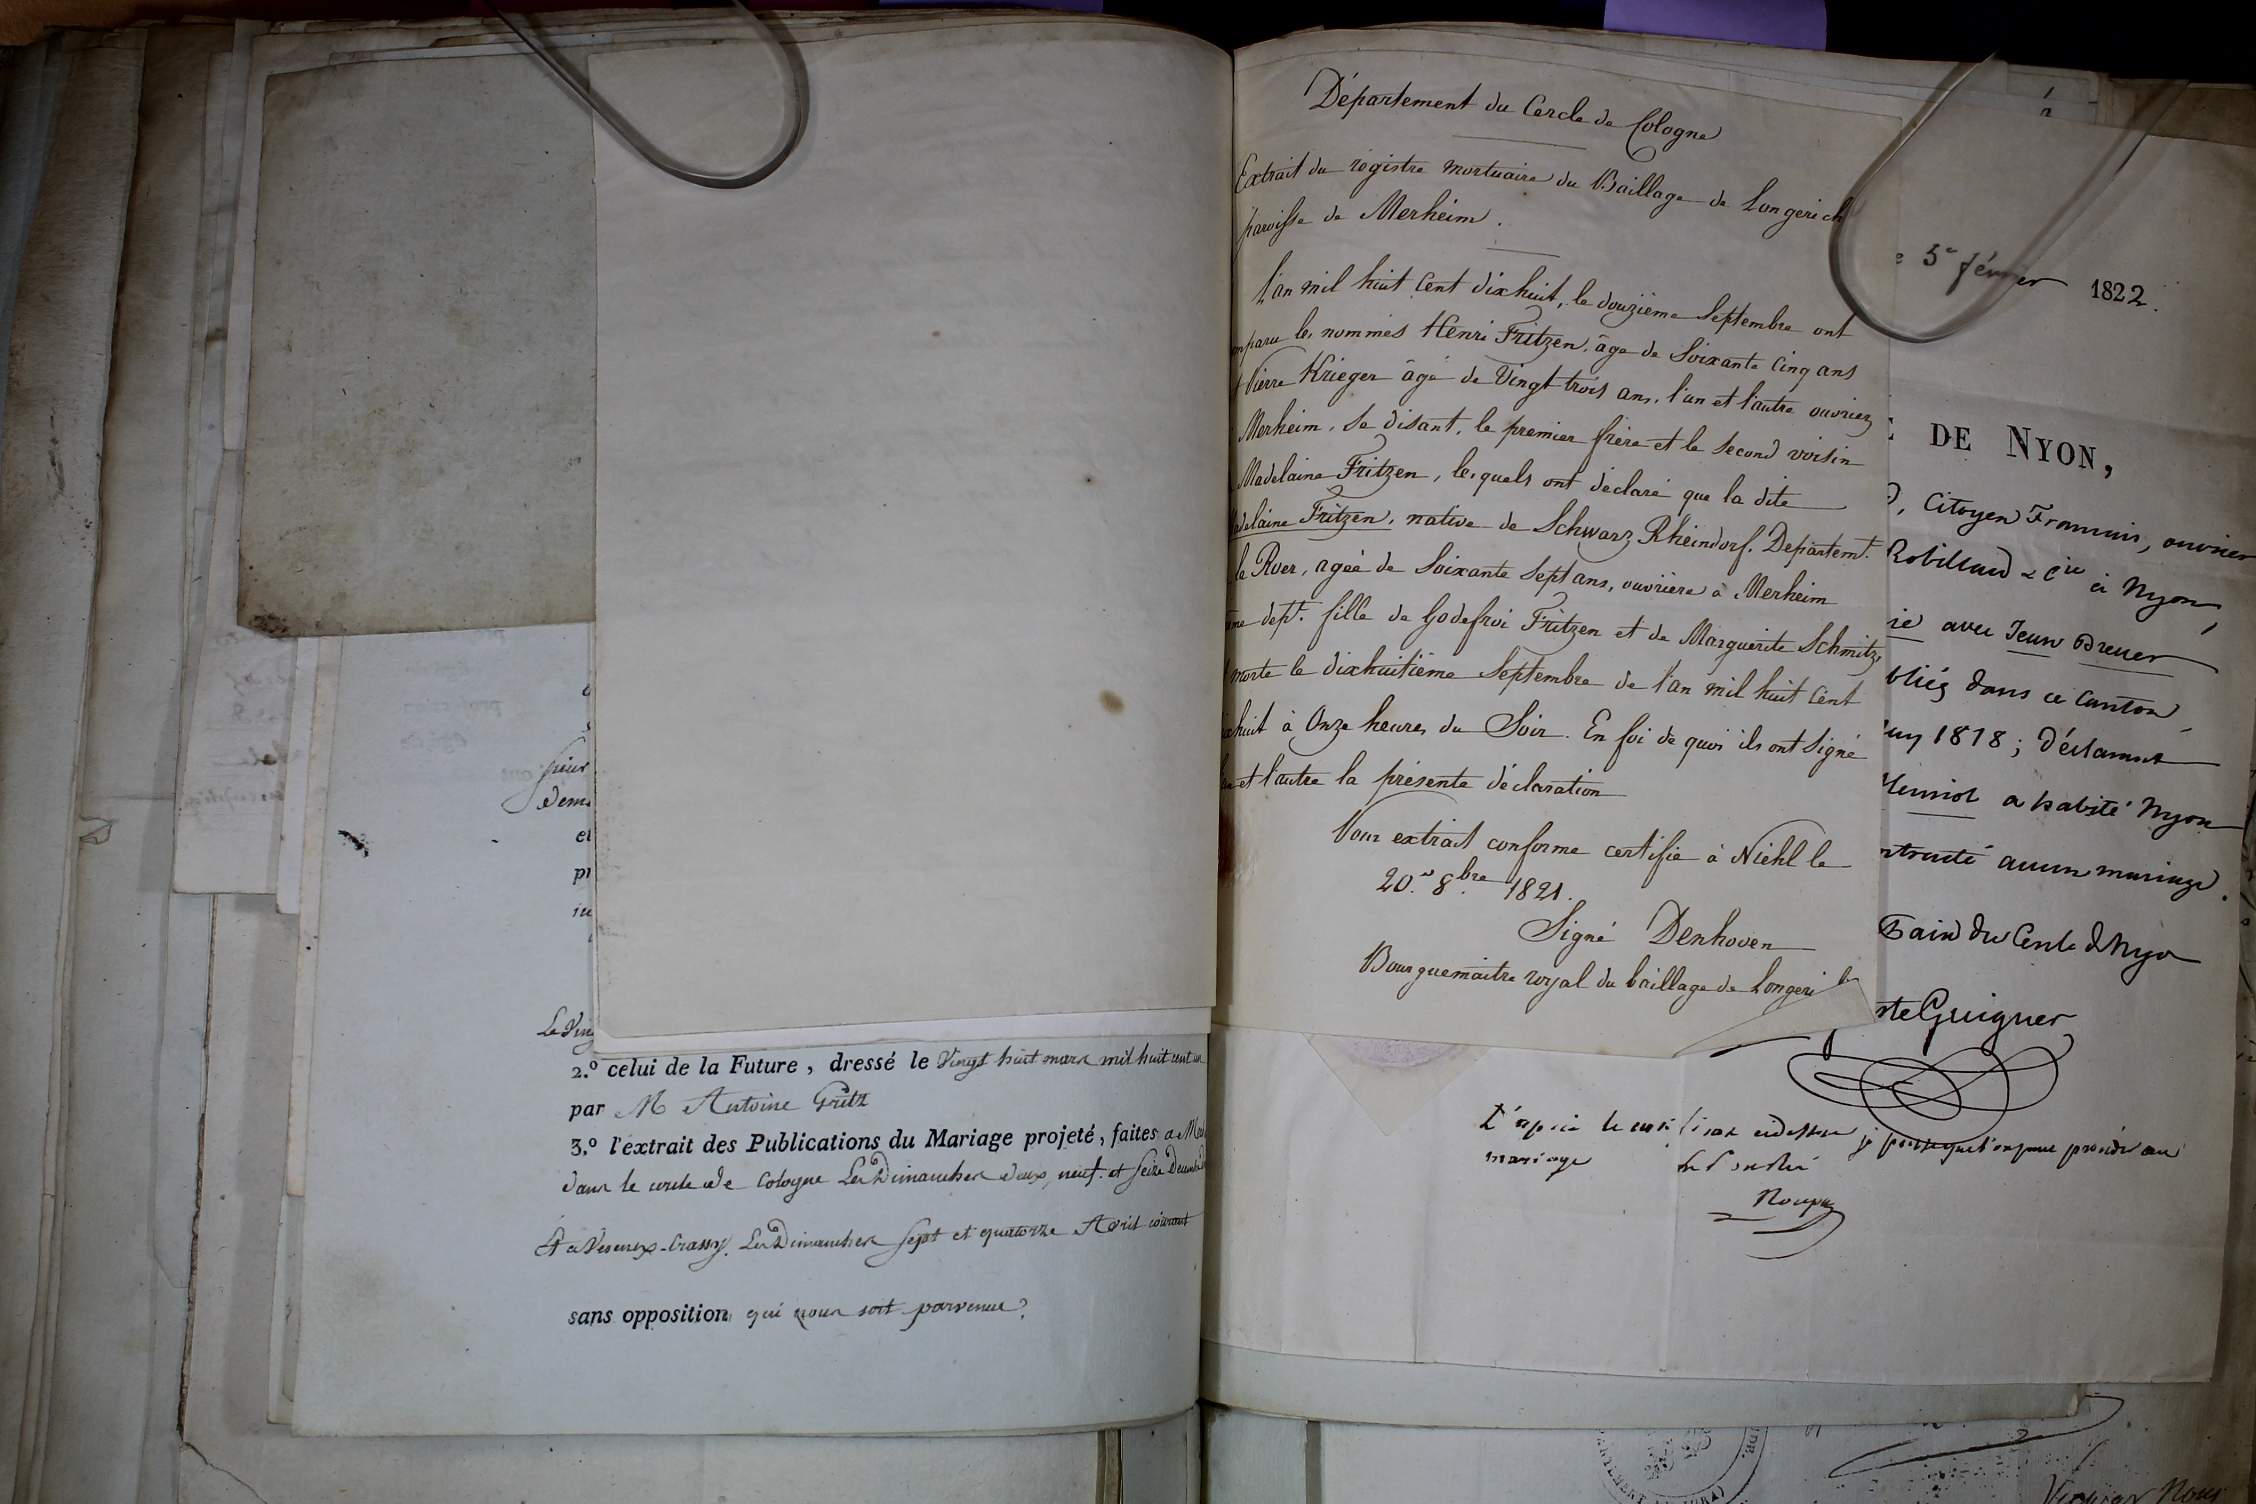 Département du Cercle de Cologne
Extrait du régistre mortuaire du Baillage de Longerich
paroisse de Merheim.
L'an mil huit cent dixhuit, le douzième Septembre ont
mparu les nommés Henri Fritzen, âge de Soixante Cinq ans
t Pierre Krieger âgé de Vingt trois ans, l'un et l'autre ouvriers
Merheim, se disant, le premier frère et le second voisin
Madelaine Fritzen, lesquels ont déclaré que la dite
adelaine Fritzen, native de Schwarz Rheindorf. Départemt.
la Roer, agée de Soixante Sept ans, ouvrière à Merheim
me dept. fille de Godefroi Fritzen et de Marguerite Schmitz,
morte le dixhuitième Septembre de l'an mil huit Cent
xhuit à Onze heures du Soir. En foi de quoi ils ont Signé
et l'autre la présente déclaration
Pour extrait conforme certifié à Niehl le
20.e 8.bre 1821.
Signé Denhoven
Bourguemaitre royal du baillage de Longerich
e 5e février 1822.
DE NYON,
, Citoyen Francais, ouvrier
Robillard & Cie à Nyon,
ié avec Jean Breuer
bliés dans ce Canton
1818 ; déclarant
a habité Nyon
ntracté aucun mariage.
Paix du Cercle d Nyon
Guiguer
mariage
pieur
dem
et
pr
Le Ving
2.º celui de la Future , dressé le Vingt huit mars mil huit cent un
par M Antoine Gritz
3.º l'extrait des Publications du Mariage projeté, faites a
dans le cercle de Cologne Les Dimanches deux, neuf et seize Decembre
Et a Versoix-Crassy. Les Dimanches sept et quatorze Avril courant
sans opposition qui nous soit parvenue.